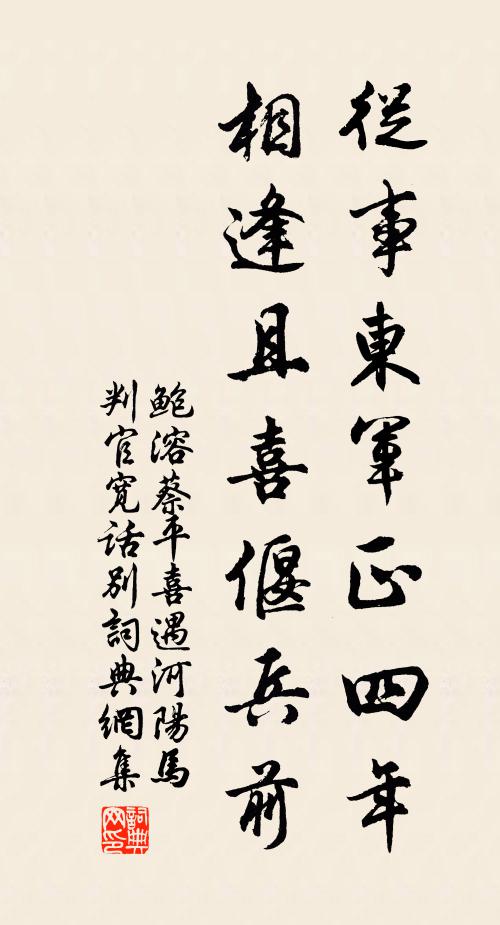 從事東軍正四年
相逢且喜偃兵前
鲍溶蔡平喜遇河陽馬
判官寬話別詞典網集
詞典網印